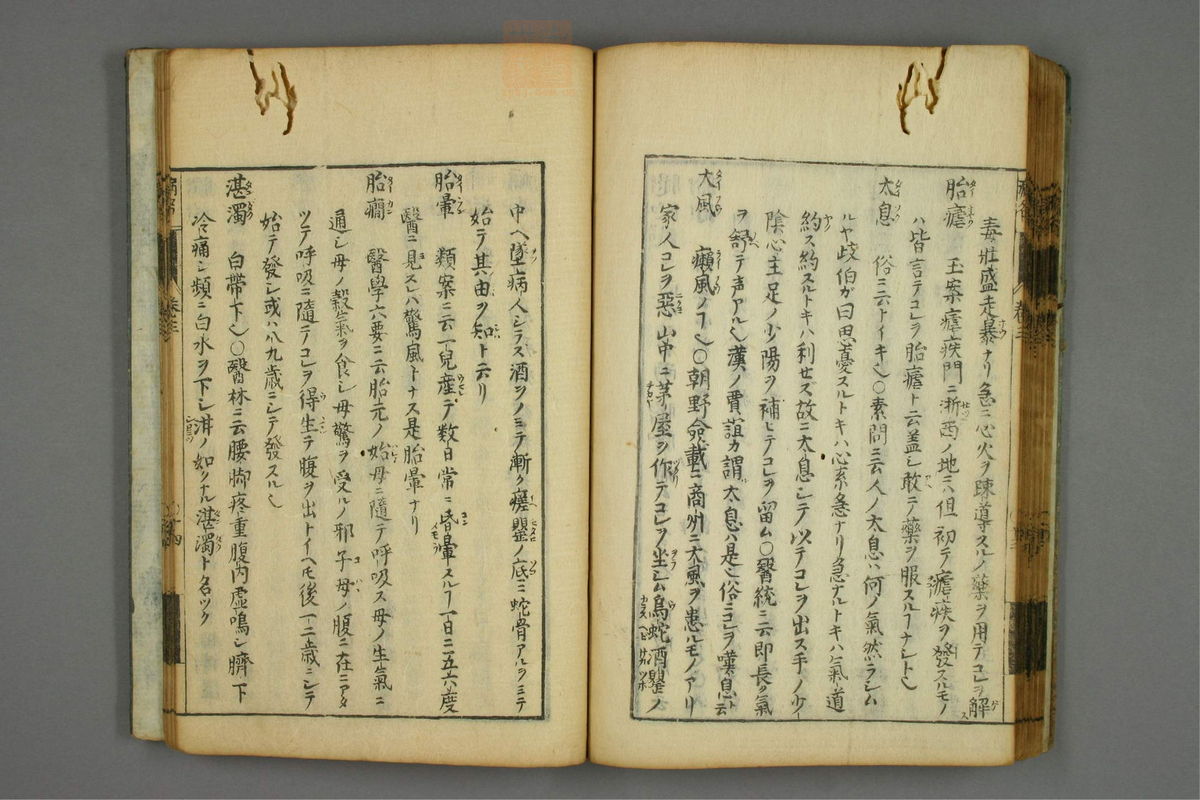 毒壯盛走暴ナリ急ニ心火ヲ疎導スルノ藥ヲ用テコレヲ解ス
胎瘧 玉案瘧疾門ニ浙西ノ地ニハ但初テ瘧疾ヲ發スルモノ
ハ皆言テコレヲ胎瘧ト云蓋シ敢テ藥ヲ服スルヿナシト也
太息 俗ニ云トイキ也〇素問ニ云人ノ太息ハ何ノ氣然ラシム
ルヤ歧伯ガ曰思憂スルトキハ心系急ナリ急ナルトキハ氣道
約ス約スルトキハ利セズ故ニ太息シテ以テコレヲ出ス手ノ少
陰心主足ノ少陽ヲ補ヒテコレヲ留ム〇醫統ニ云即長ク氣
ヲ舒テ声アル也漢ノ賈誼カ謂太息ハ是也俗ニコレヲ嘆息ト云
大風 癩風ノヿ也〇朝野僉載ニ商州ニ大風ヲ患ルモノアリ
家人コレヲ惡山中ニ茅屋ヲ作テコレヲ坐シム烏蛇酒罌ノ
中ヘ墜病人シラス酒ヲノミテ漸ク瘥罌ノ底ニ蛇骨アルヲミテ
始テ其由ヲ知ト云リ
胎暈 類案ニ云一兒産テ数日常ニ昏暈スルヿ一日ニ五六度
醫ニ見スレハ驚風トナス是胎暈ナリ
胎癇 醫學六要ニ云胎元ノ始母ニ隨テ呼吸ス母ノ生氣ニ
通シ母ノ穀氣ヲ食シ母驚ヲ受ルノ邪子母ノ腹ニ在ニアタ
ツテ呼吸ニ隨テコレヲ得生テ腹ヲ出トイヘモ後一二歳ニシテ
始テ發シ或ハ八九歳ニシテ發スル也
湛濁 白帶下也〇醫林ニ云腰脚疼重腹内虚鳴シ臍下
冷痛シ頻ニ白水ヲ下シ泔ノ如クナル湛濁ト名ツク